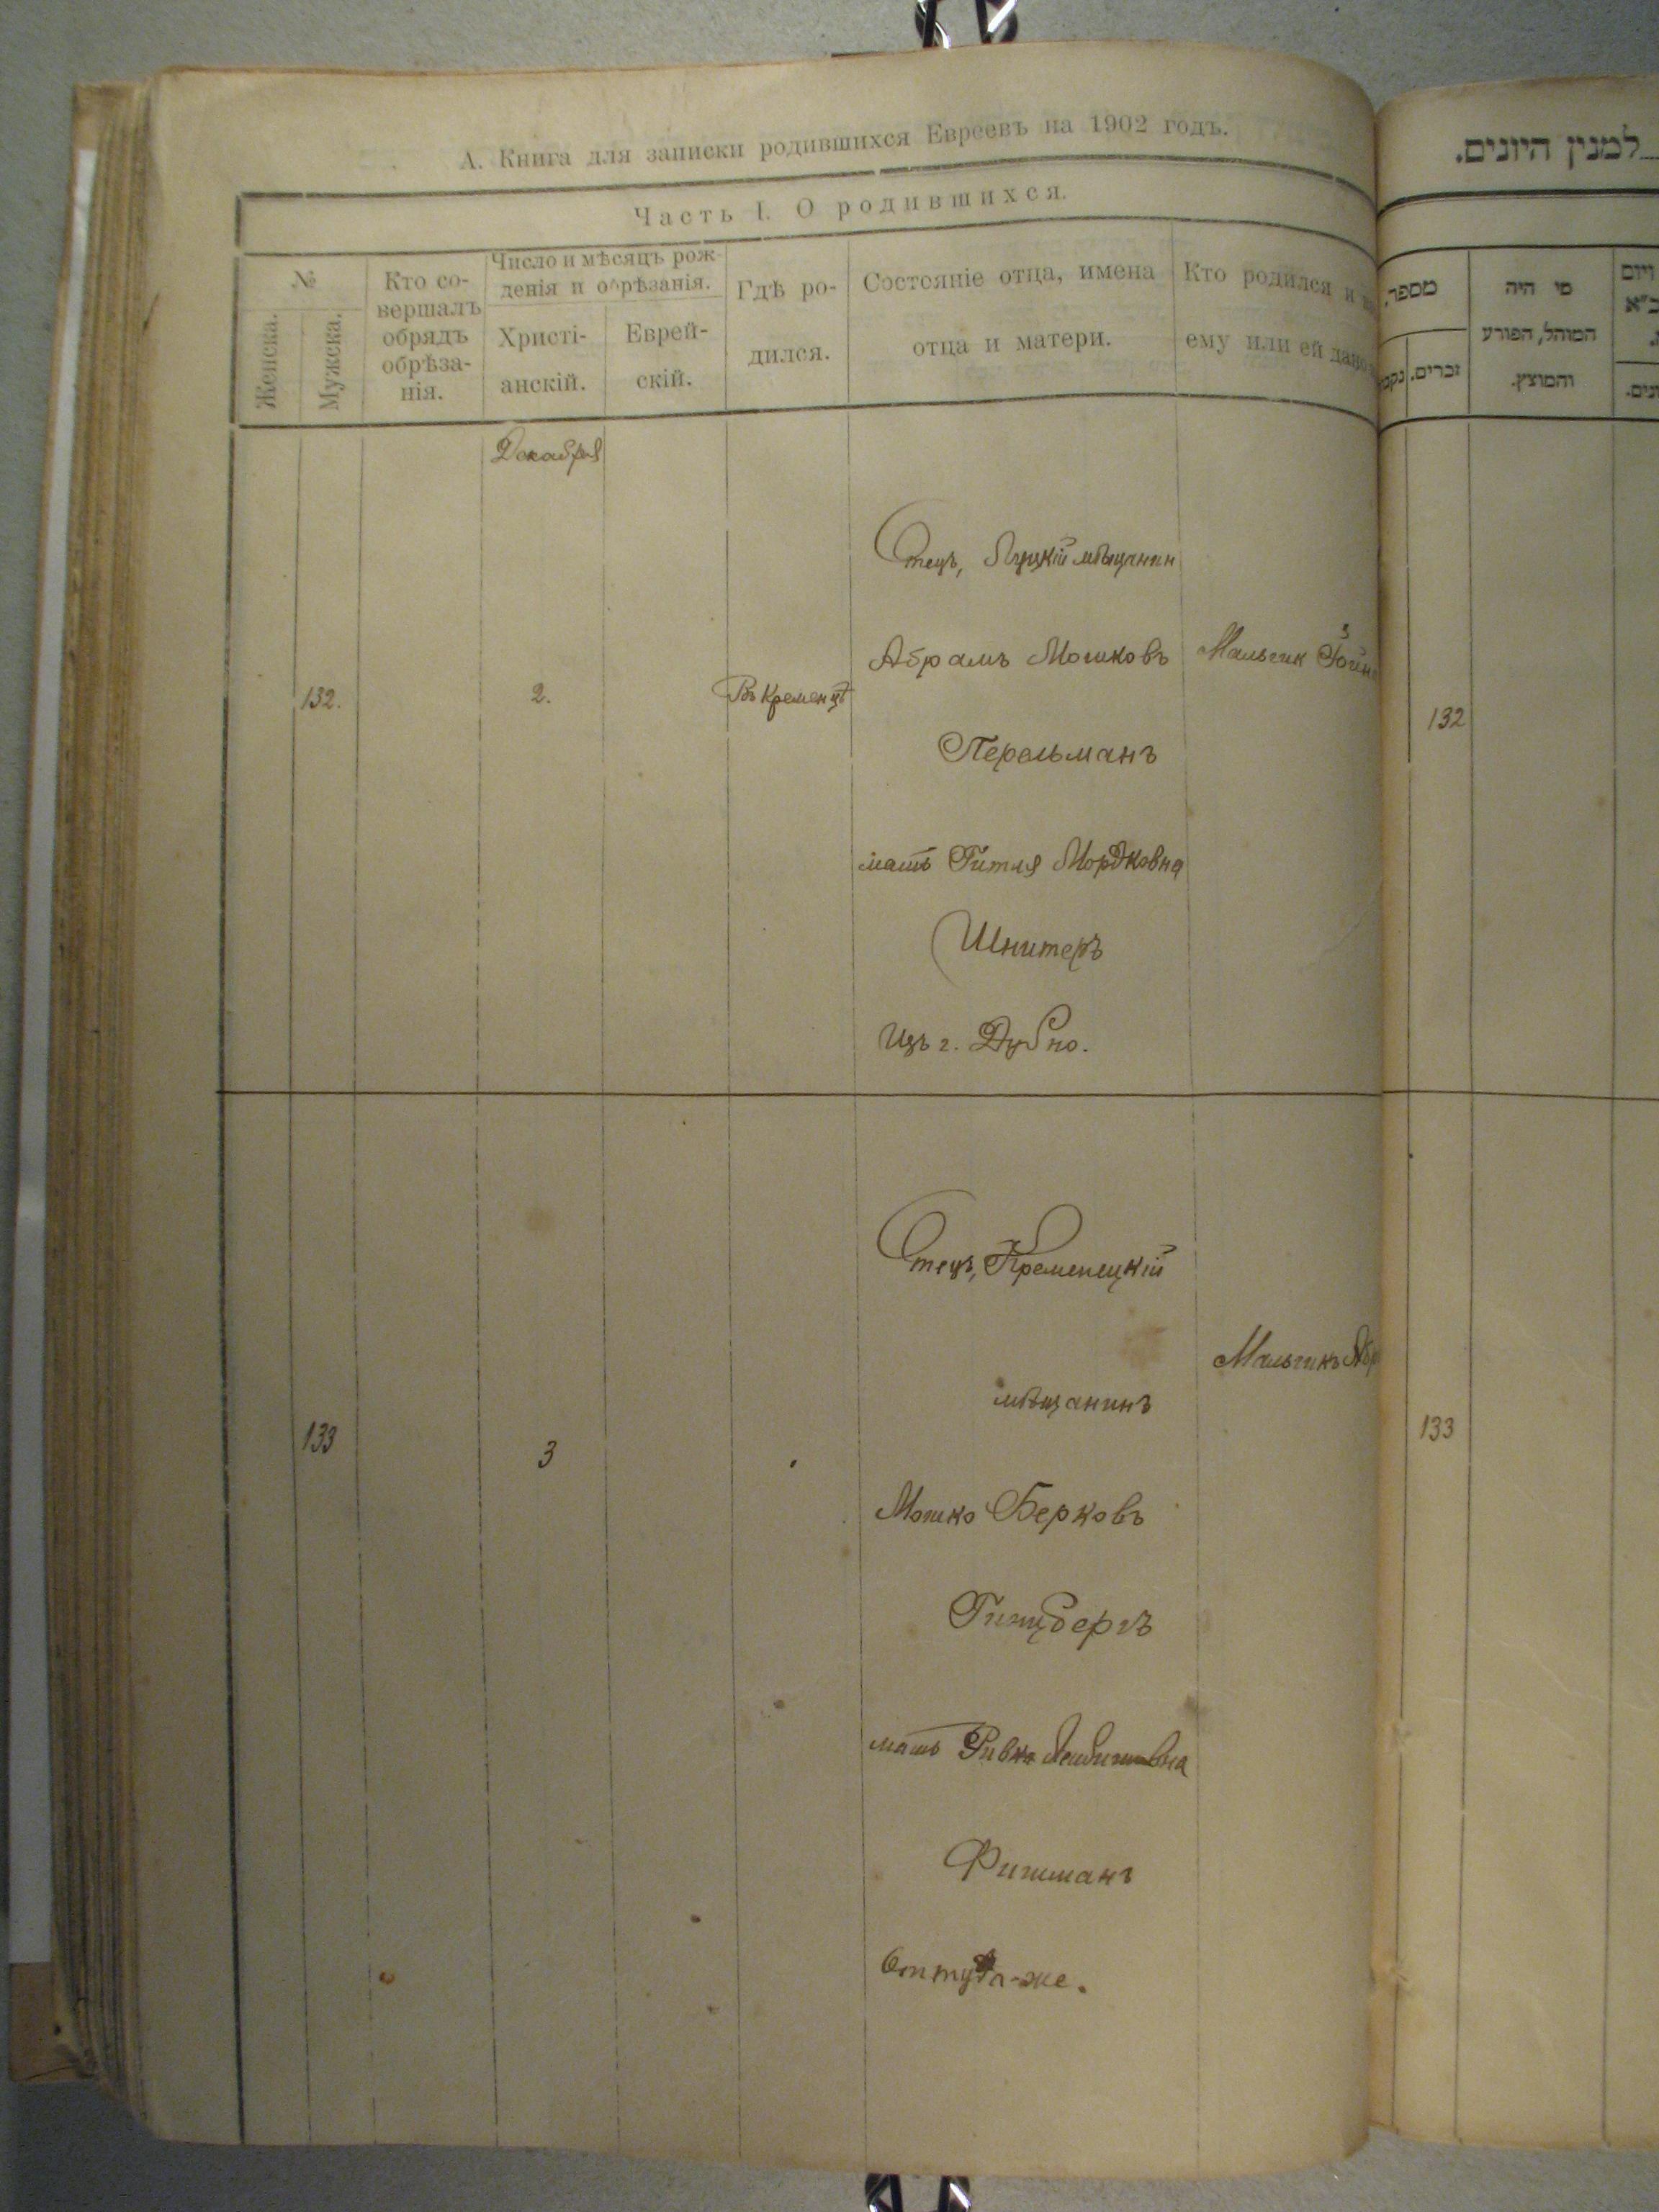 А. Книга для записки родившихся Евреевъ на 1902 годъ.
Часть I. О родившихся.
№
Женска.
Мужска.
Кто со-
вершалъ
обрядъ
обрѣза-
нія.
Число и мѣсяцъ рож-
денія и обрѣзанія.
Христі-
анскій.
Еврей-
скій.
Гдѣ ро-
дился.
Состояніе отца, имена
отца и матери.
Кто родился и
ему или ей дано
Декабря
132.
2.
Въ Кременцѣ
Отецъ, Луцкій мѣщанин
Абрамъ Мошковъ
Перельманъ
мать Гитля Мордковна
Шнитеръ
Изъ г. Дубно.
Мальчик
133
3
Отецъ, Кременецкій
мѣщанинъ
Мошко Берковъ
Гинцбергъ
мать Ривка
Фишманъ
Оттуда-же.
Мальчикъ
למנין היונים.
מספר.
זכרים.
מי היה
המוהל, הפורע
והמוצץ.
132
133